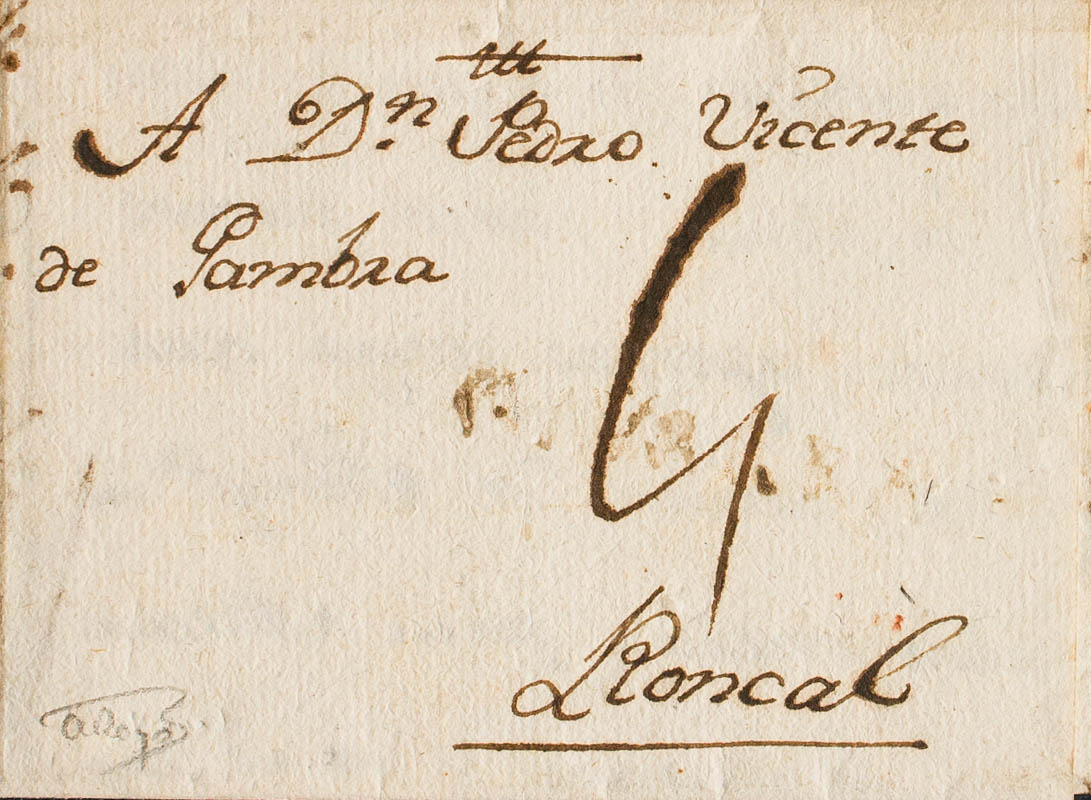 A D.n Pedro Vicente
de Gambra
4
Roncal